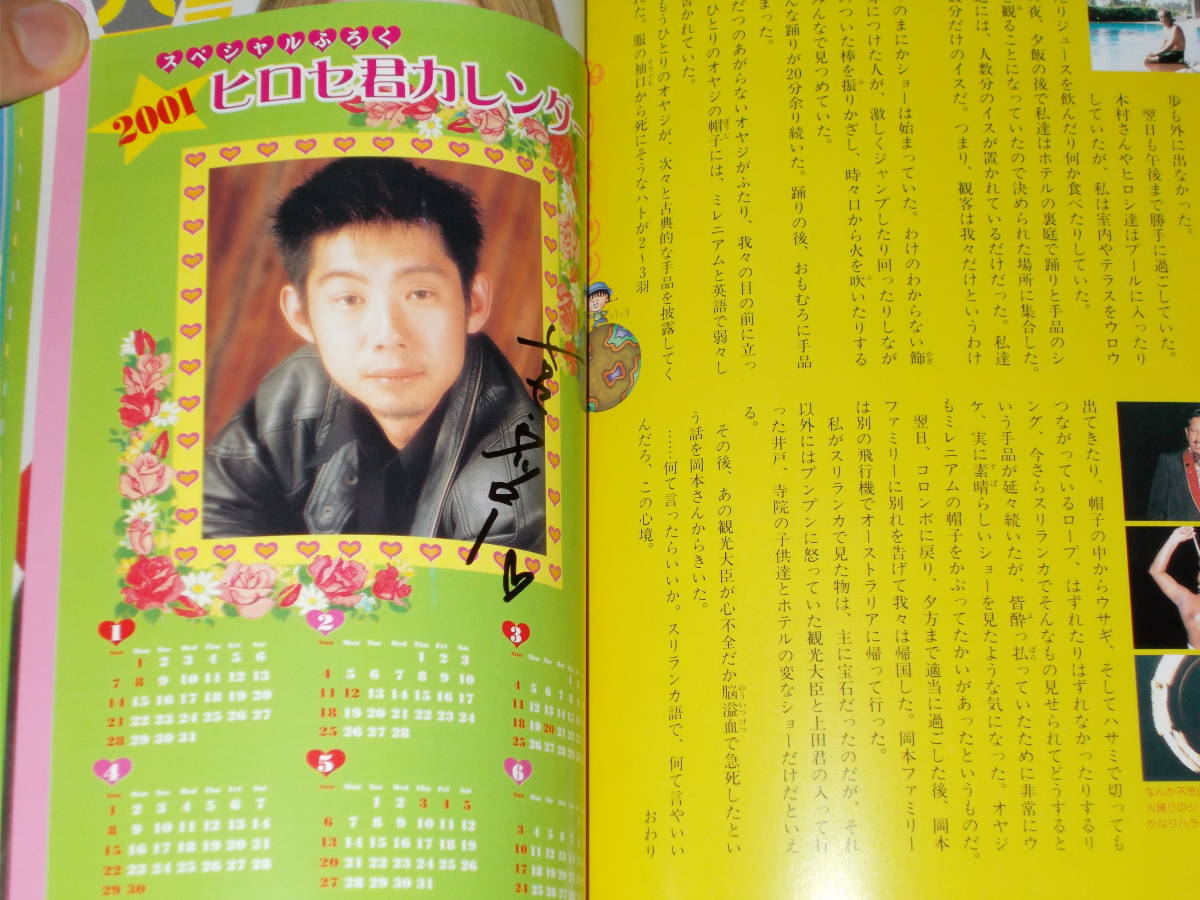 スペシャルふろく
2001
ヒロセ君カレンダー
1
Sun Mon Tue Wed Thu Fri Sat
1 2 3 4 5 6
7 8 9 10 11 12 13
14 15 16 17 18 19 20
21 22 23 24 25 26 27
28 29 30 31
2
Sun Mon Tue Wed Thu Fri Sat
1 2 3
4 5 6 7 8 9 10
11 12 13 14 15 16 17
18 19 20 21 22 23 24
25 26 27 28
3
4 5 6 7 8
11 12 13 14 15
18 19 20 21 22
25 26 27 28 29
4
Sun Mon Tue Wed Thu Fri Sat
1 2 3 4 5 6 7
8 9 10 11 12 13 14
15 16 17 18 19 20 21
22 23 24 25 26 27 28
29 30
5
Sun Mon Tue Wed Thu Fri Sat
1 2 3 4 5
6 7 8 9 10 11 12
13 14 15 16 17 18 19
20 21 22 23 24 25 26
27 28 29 30 31
6
3 4 5 6 7
10 11 12 13 14
17 18 19 20 21
24 25 26 27 28
歩も外に出なかった。
翌日も午後まで勝手に過ごしていた。
木村さんやヒロシ達はプールに入ったり
していたが、私は室内やテラスをウロウ
たりジュースを飲んだり何か食べたりしていた。
夜、夕飯の後で私達はホテルの裏庭で踊りと手品のシ
を観ることになっていたので決められた場所に集合した。
には、人数分のイスが置かれているだけだった。私達
数分だけのイスだ。つまり、観客は我々だけというわけ
のまにかショーは始まっていた。わけのわからない飾
身につけた人が、激しくジャンプしたり回ったりしなが
のついた棒を振りかざし、時々口から火を吹いたりする
みんなで見つめていた。
んな踊りが20分余り続いた。踊りの後、おもむろに手品
まった。
だつのあがらないオヤジがふたり、我々の目の前に立っ
ひとりのオヤジの帽子には、ミレニアムと英語で弱々し
書かれていた。
もうひとりのオヤジが、次々と古典的な手品を披露してく
れた。服の袖口から死にそうなハトが2〜3羽
出てきたり、帽子の中からウサギ、そしてハサミで切っても
つながっているロープ、はずれたりはずれなかったりするリ
ング、今さらスリランカでそんなもの見せられてどうすると
いう手品が延々続いたが、皆酔っ払っていたために非常にウ
ケ、実に素晴らしいショーを見たような気になった。オヤジ
もミレニアムの帽子をかぶってたかいがあったというものだ。
翌日、コロンボに戻り、夕方まで適当に過ごした後、岡本
ファミリーに別れを告げて我々は帰国した。岡本ファミリー
は別の飛行機でオーストラリアに帰って行った。
私がスリランカで見た物は、主に宝石だったのだが、それ
以外にはプンプンに怒っていた観光大臣と上田君の入って行
った井戸、寺院の子供達とホテルの変なショーだけだといえ
る。
その後、あの観光大臣が心不全だか脳溢血で急死したとい
う話を岡本さんからきいた。
……何て言ったらいいか。スリランカ語で、何て言やいい
んだろ、この心境。
おわり
なんか不思
火踊りのシ
かなりハラ